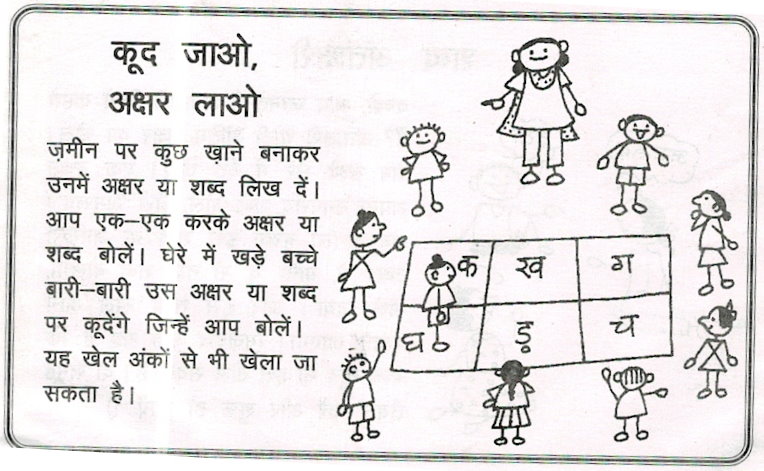 कूद जाओ,
अक्षर लाओ
ज़मीन पर कुछ ख़ाने बनाकर
उनमें अक्षर या शब्द लिख दें।
आप एक–एक करके अक्षर या
शब्द बोलें। घेरे में खड़े बच्चे
बारी–बारी उस अक्षर या शब्द
पर कूदेंगे जिन्हें आप बोलें।
यह खेल अंकों से भी खेला जा
सकता है।
क ख ग
घ ड़ च